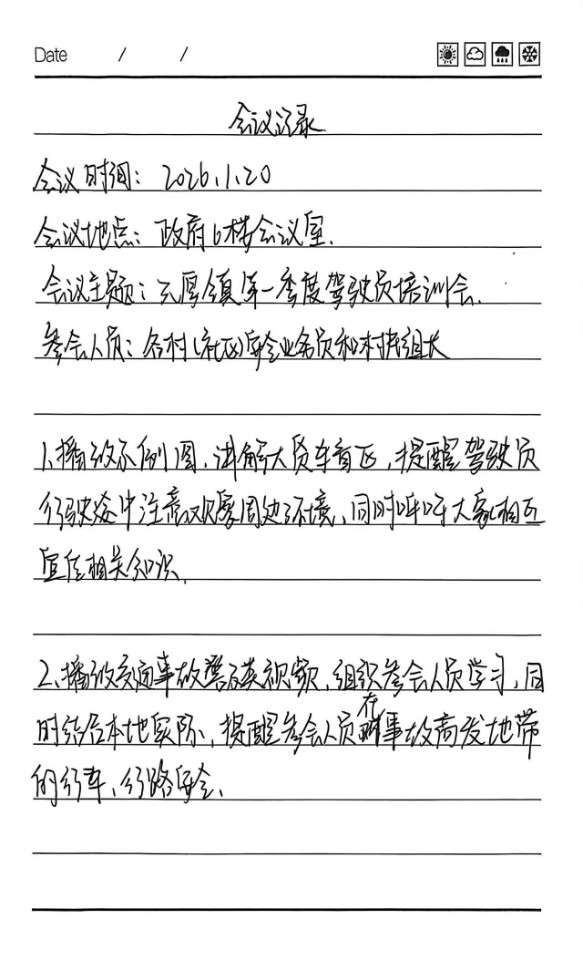 Date / /
会议记录
会议时间：2026.1.20
会议地点：政府6楼会议室.
会议主题：元厚镇第一季度驾驶员培训会.
参会人员：各村(社区)安全业务员和村民组长
1.播放示例图，讲解大货车盲区，提醒驾驶员
行驶途中注意观察周边环境，同时呼吁大家相互
宣传相关知识.
2.播放交通事故警示类视频，组织参会人员学习，同
时结合本地实际，提醒参会人员在事故高发地带
的行车、行路安全.